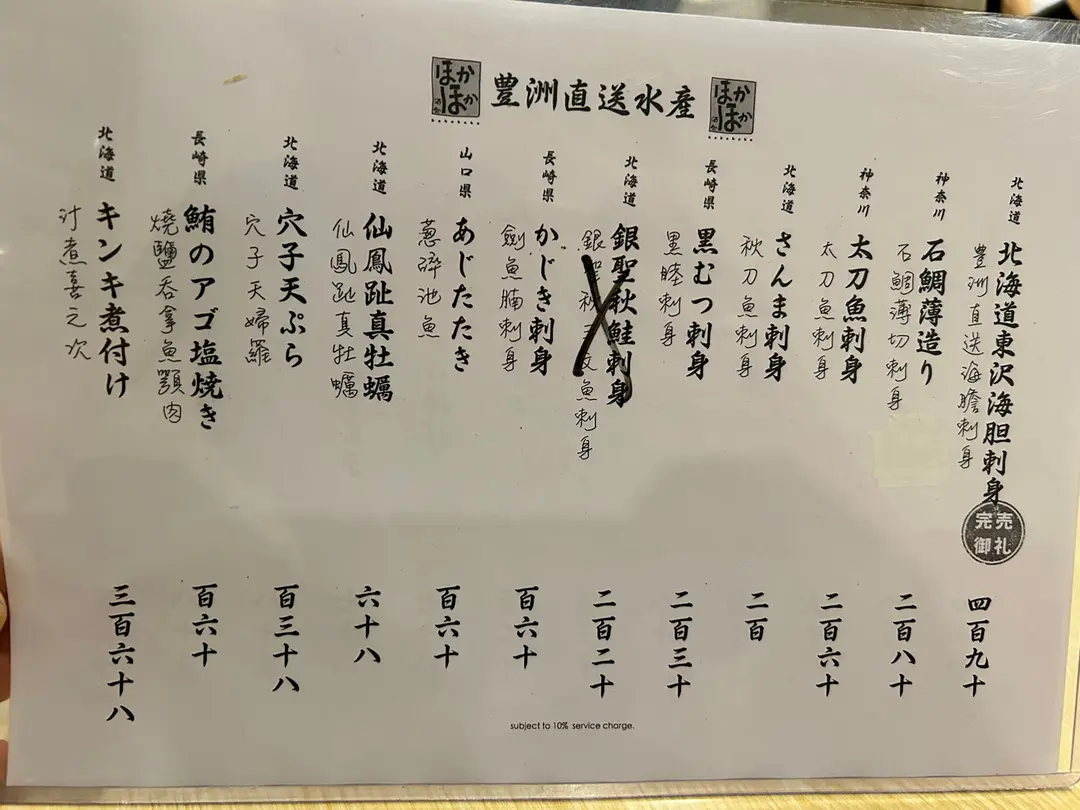 ほかほか
豊洲直送水産
ほかほか
北海道
北海道東沢海胆刺身
豊洲直送海膽刺身
完売御礼
四百九十
神奈川
石鯛薄造り
石鯛薄切刺身
二百八十
神奈川
太刀魚刺身
太刀魚刺身
二百六十
北海道
さんま刺身
秋刀魚刺身
二百
長崎県
黒むつ刺身
黒睦刺身
二百三十
北海道
銀聖秋鮭刺身
銀聖秋三文魚刺身
二百二十
長崎県
かじき刺身
劍魚腩刺身
百六十
山口県
あじたたき
蔥碎池魚
百六十
北海道
仙鳳趾真牡蠣
仙鳳趾真牡蠣
六十八
北海道
穴子天ぷら
穴子天婦羅
百三十八
長崎県
鮪のアゴ塩焼き
燒鹽吞拿魚顎肉
百六十
北海道
キンキ煮付け
汁煮喜之次
三百六十八
subject to 10% service charge.